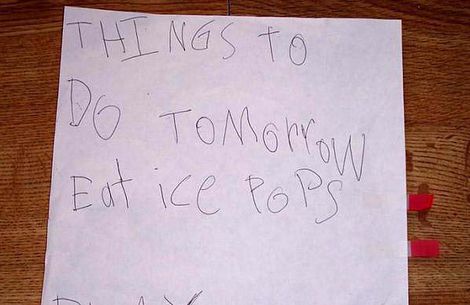 THINGS TO
DO TOMOrrOW
Eat ice POPS